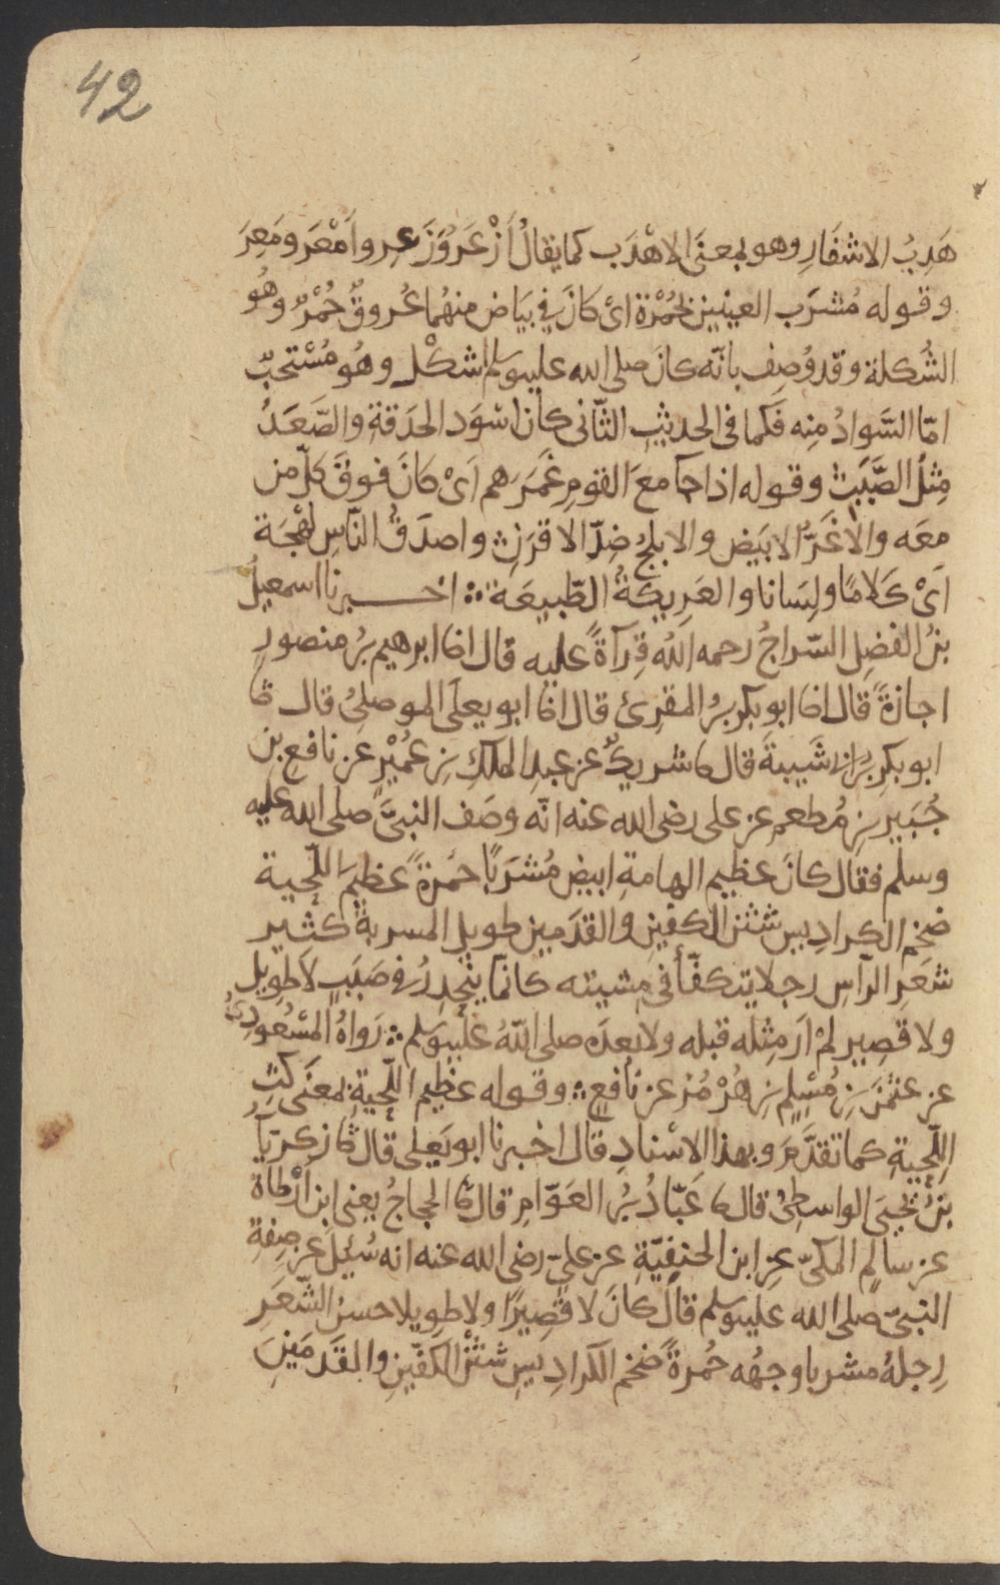 42
هَدِبُ الاشفَارِ وهو بمعنَى الاهْدَب كما يقالُ اَزْعَر وَزَعِر واَمْعَر ومَعِرَ
وقوله مُشرَب العينين بحُمْرَة اىْ كانَ في بَيَاض منهُما عُروقٌ حُمْرٌ وهُو
الشُكلة وقد وُصِف بانّه كانَ صلى الله عليه وسلم اشكل وهُو مُسْتحبٌّ
امّا السَّوادُ مِنه فَكما فى الحديثِ الثّانى كان اسْوَد الحَدَقةِ والصَّعَدُ
مِثلُ الصَّبَب وقوله اذا جآ معَ القومِ غَمَرَهم اَىْ كانَ فوقَ كلّ من
معَه والاغَرُّ الابَيض والابلجُ ضِدّ الاقرَن واصدَقُ النّاسِ لهْجَة
اَىْ كَلامًا ولِسَانا والعَرِيكَةُ الطّبيعَة ؞ اخـــبرنا اسمعيلُ
بنُ الفضلِ السّراجُ رحمه اللهُ قِرآةً عليه قال انا ابرهيم بنُ منصورٍ
اجازةً قال انا ابو بكرِ بنُ المقرئ قال انا ابو يعلَى الموصلىُ قال ثا
ابو بكرِ بنُ ابى شَيبةَ قال ثا شريكٌ عن عبدِ الملكِ بنِ عُمَيْرٍ عن نافع بنِ
جُبَيرِ بنِ مُطعمٍ عن على رضى الله عنه انّه وصَف النبىَّ صلى الله عليه
وسلم فقال كانَ عظيم الهامةِ ابيض مُشرَبًا حمُرةً عظيمَ اللّحية
ضخم الكرادِيس شثن الكفّينِ والقدَمين طويل المسربةُ كثير
شعَرِ الرّاسِ رجلا يتكفّأ فى مشيته كانّما ينحدِرُ فى صَبَبٍ لا طويل
ولا قصِير لمْ ارَ مِثله قبله ولا بعدَه صلى اللهُ عليه وسلم ؞ رَواهُ المسْعُودىُّ
عن عثمنَ بنِ مُسْلِمِ بنِ هُرْمُز عن نافعٍ ؞ وقوله عظيم اللّحيةِ بمعنَى كثِّ
اللّحِيةِ كما تقدَّمَ وبهذا الاسْنادِ قال اخبرنا ابو يَعلى قالَ ثا زكريّآُ
بنُ يَحيَى الواسِطىُّ قال ثا عَبّادُ بنُ العَوّامِ قال ثا الحجاجُ يعنى ابن اَرْطاةَ
عن سالِم المكىّ عنِ ابن الحنفِيّةِ عن علىّ رضى الله عنه انه سُئِلَ عن صِفةِ
النبىّ صلى الله عليه وسلم قال كانَ لا قَصِيرًا ولا طويلا حسنُ الشّعَرِ
رِجلهُ مشربا وجهُه حُمرةً ضخم الكرادِيسِ شثْنُ الكفّينِ والقدَمَينِ